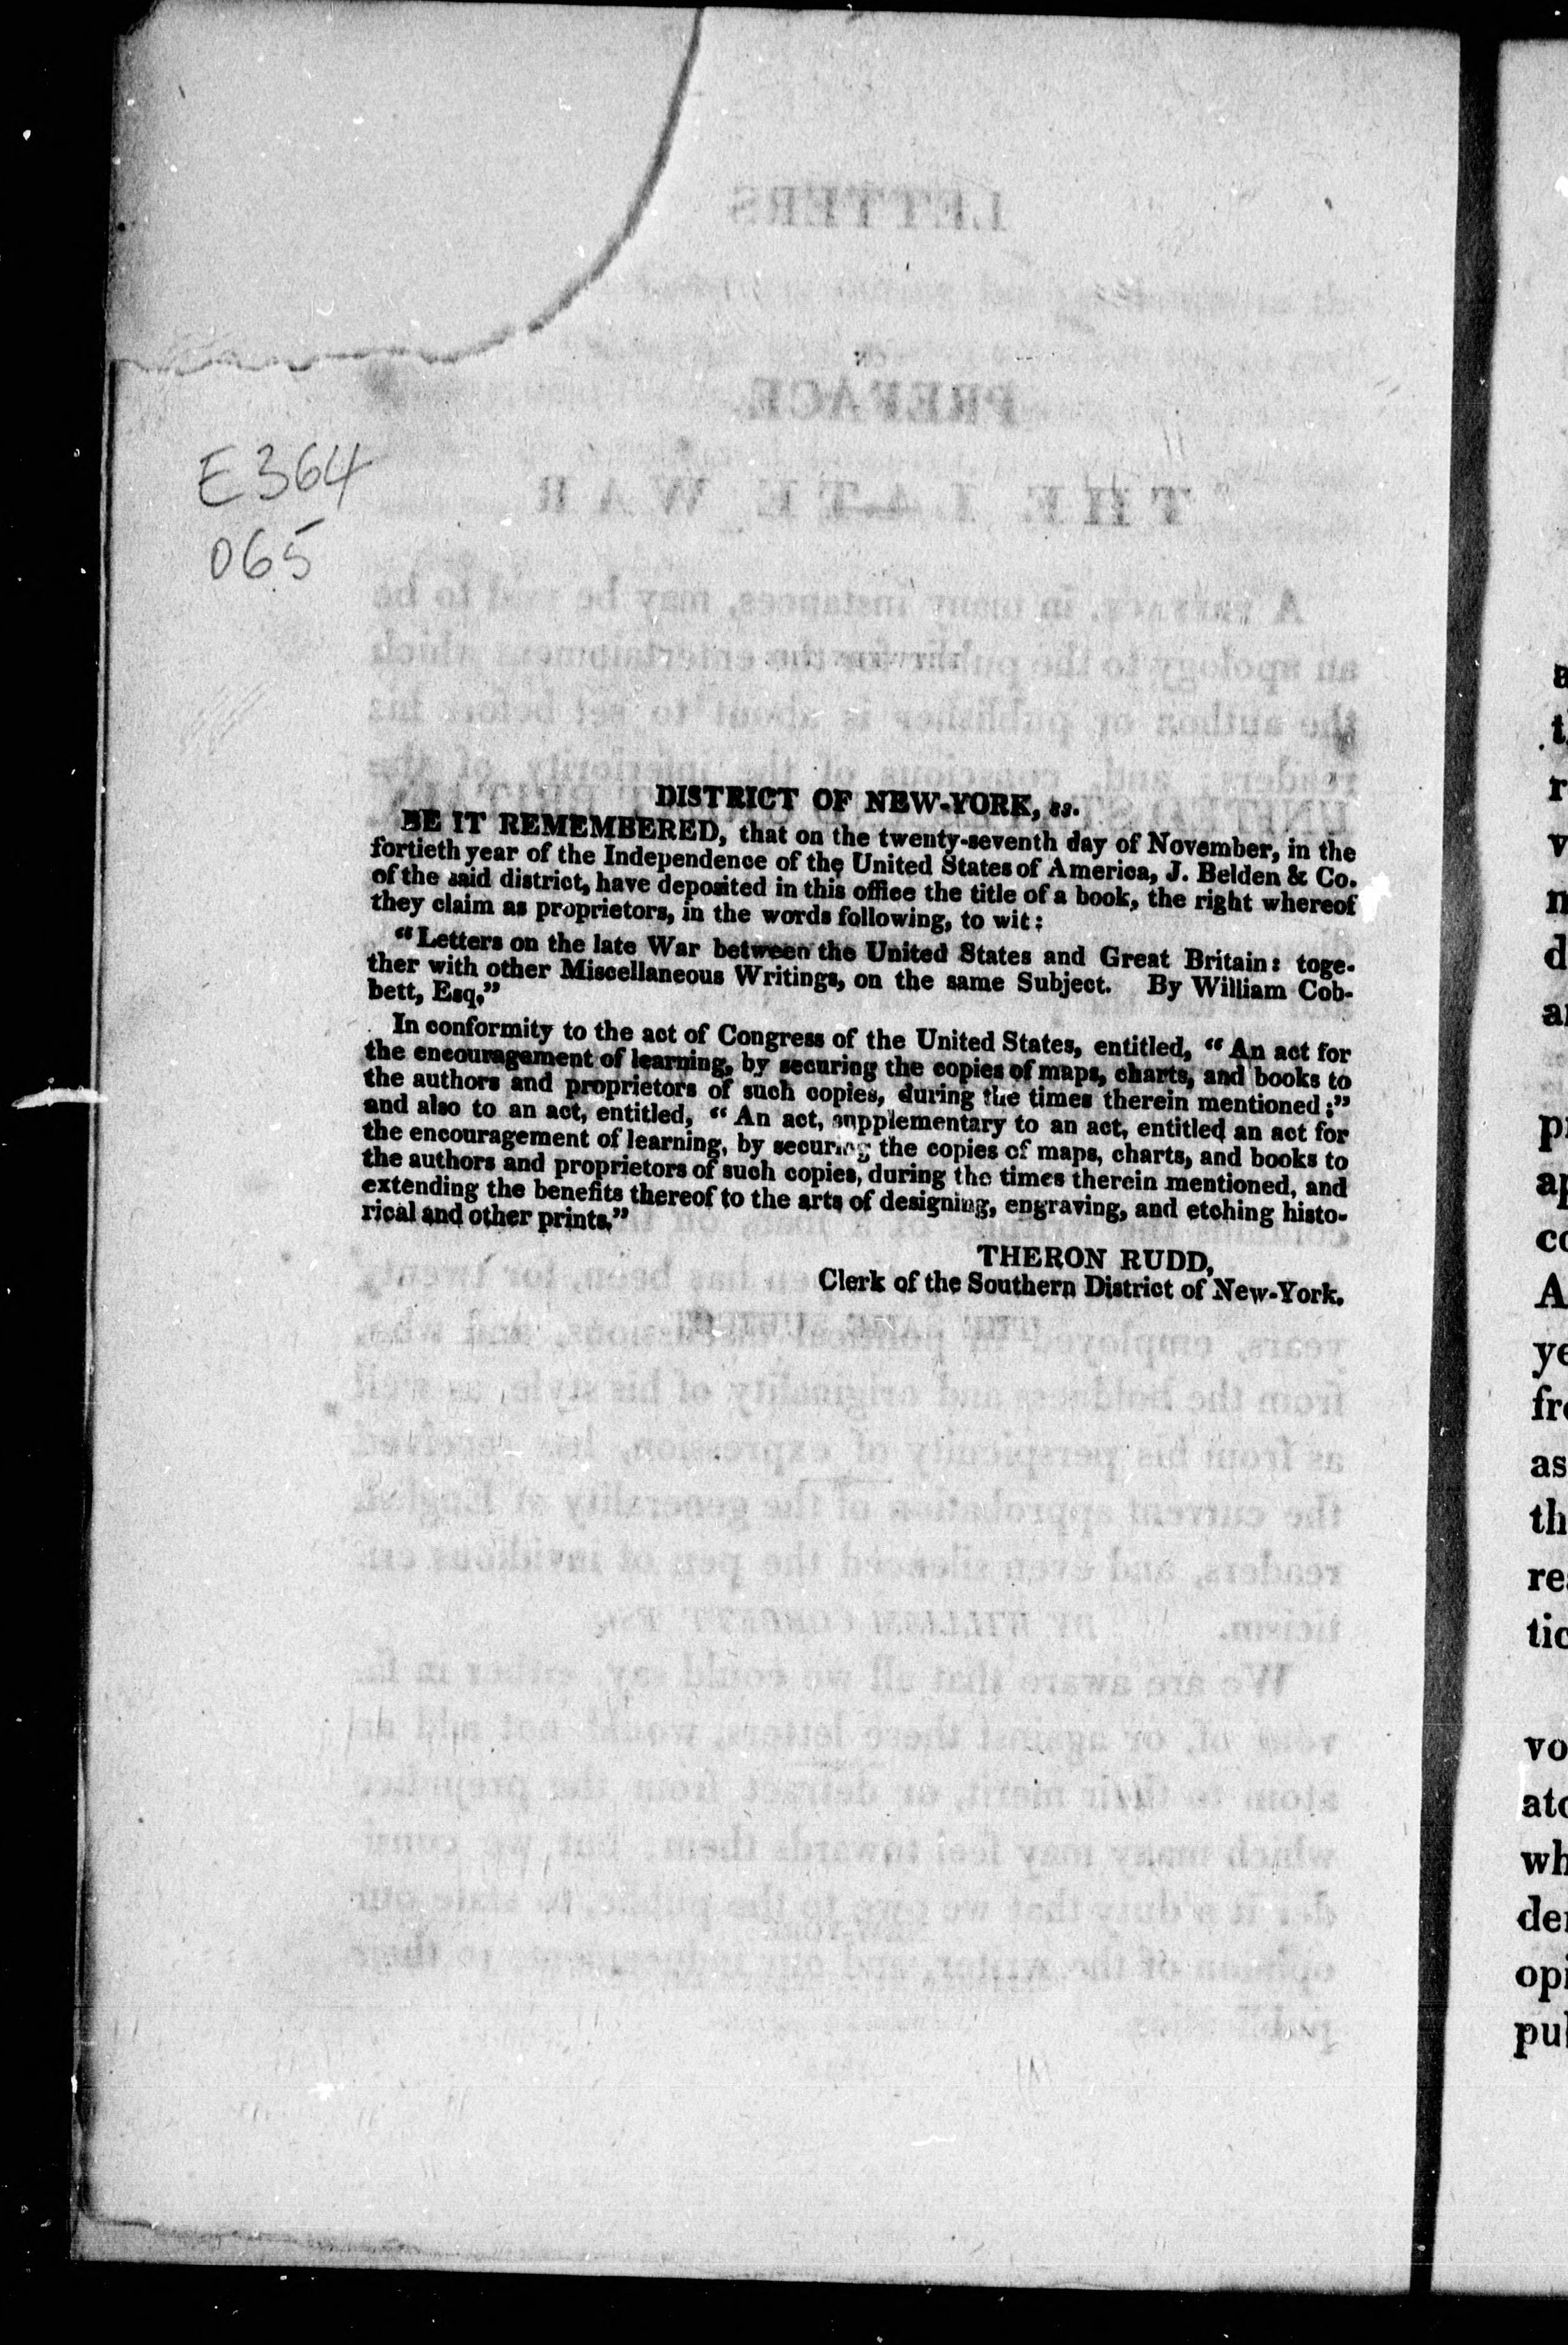 E364
065
DISTRICT OF NEW-YORK, ss.
BE IT REMEMBERED, that on the twenty-seventh day of November, in the
fortieth year of the Independence of the United States of America, J. Belden & Co.
of the said district, have deposited in this office the title of a book, the right whereof
they claim as proprietors, in the words following, to wit:
"Letters on the late War between the United States and Great Britain: toge-
ther with other Miscellaneous Writings, on the same Subject. By William Cob-
bett, Esq."
In conformity to the act of Congress of the United States, entitled, "An act for
the encouragement of learning, by securing the copies of maps, charts, and books to
the authors and proprietors of such copies, during the times therein mentioned;"
and also to an act, entitled, "An act, supplementary to an act, entitled an act for
the encouragement of learning, by securing the copies of maps, charts, and books to
the authors and proprietors of such copies, during the times therein mentioned, and
extending the benefits thereof to the arts of designing, engraving, and etching histo-
rical and other prints."
THERON RUDD,
Clerk of the Southern District of New-York.